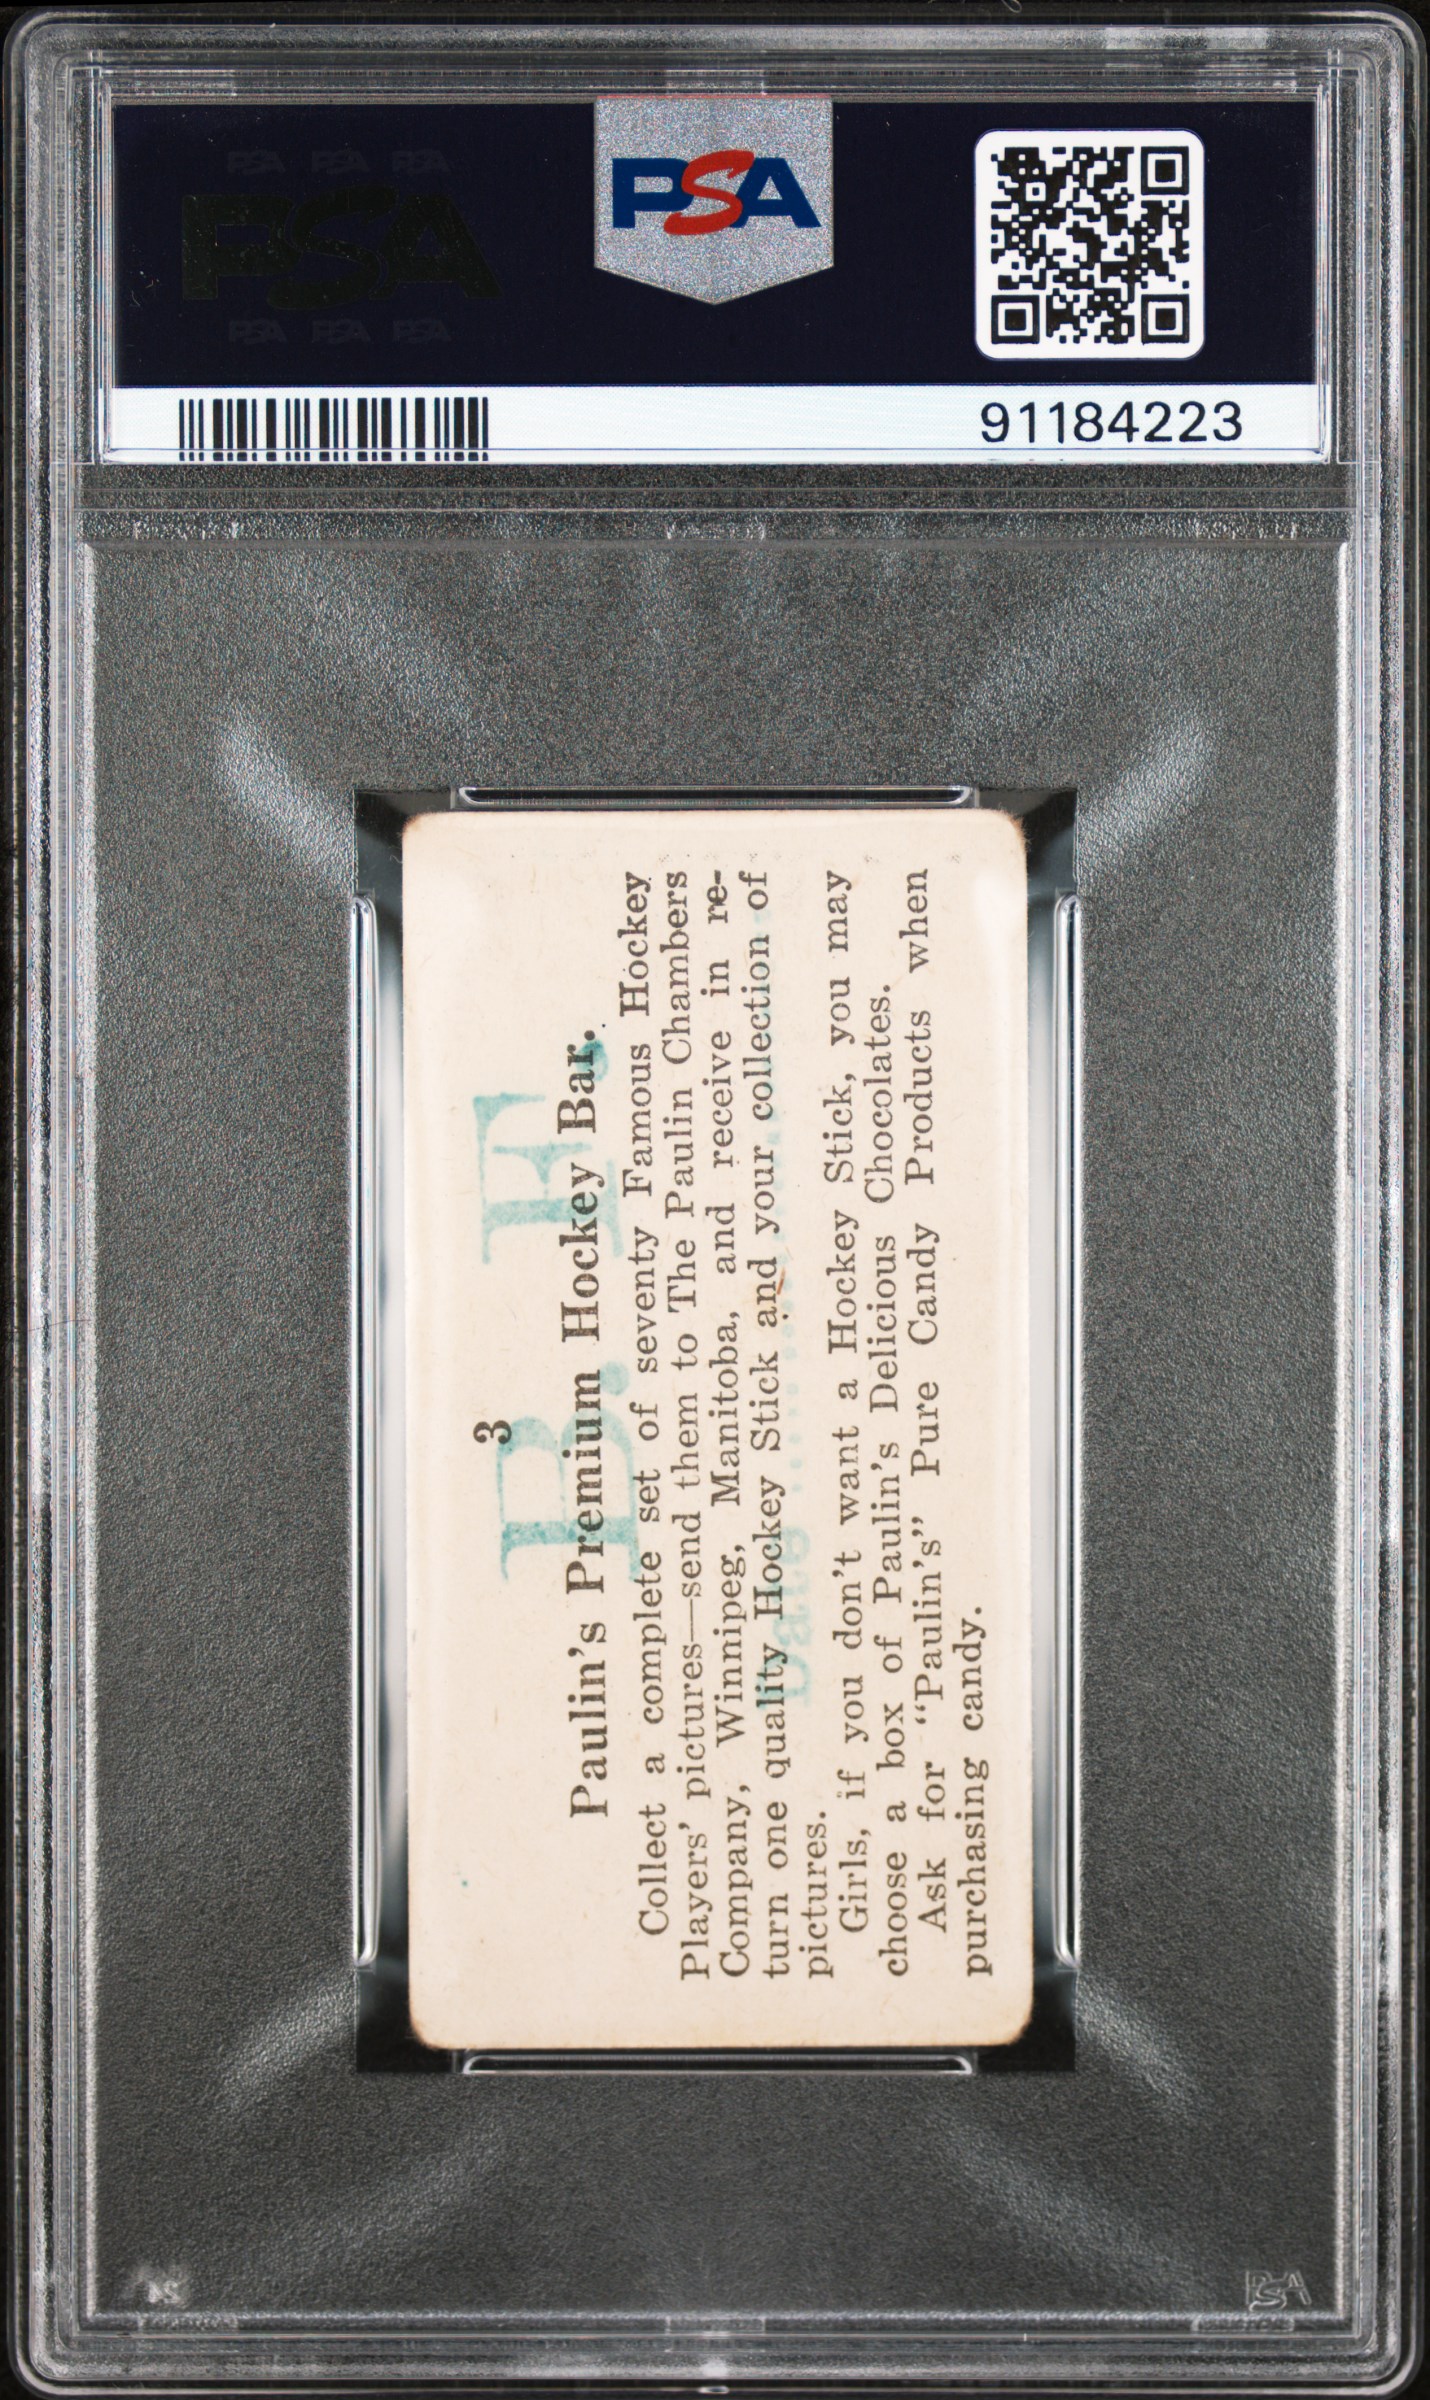 PSA PSA PSA
PSA
PSA PSA PSA
PSA
91184223
B. F.
3
Paulin's Premium Hockey Bar.
Collect a complete set of seventy Famous Hockey
Players' pictures—send them to The Paulin Chambers
Company, Winnipeg, Manitoba, and receive in re-
turn one quality Hockey Stick and your collection of
pictures.
Girls, if you don't want a Hockey Stick, you may
choose a box of Paulin's Delicious Chocolates.
Ask for "Paulin's" Pure Candy Products when
purchasing candy.
Date
PSA